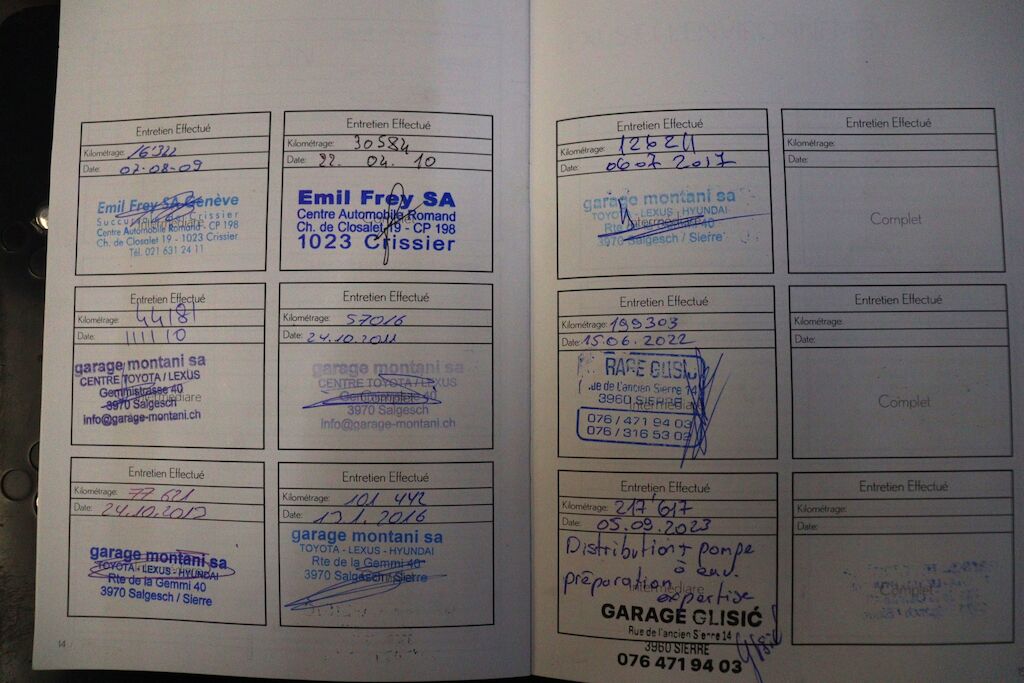 Entretien Effectué
Kilométrage: 16'322
Date: 07-08-09
Emil Frey SA Genève
Succursale de Crissier
Centre Automobile Romand
Ch. de Closalet 19 - 1023 Crissier
Tél. 021 631 24 11
Entretien Effectué
Kilométrage: 30584
Date: 22. 04. 10
Emil Frey SA
Centre Automobile Romand
Ch. de Closalet 19 - CP 198
1023 Crissier
Entretien Effectué
Kilométrage: 44181
Date: 111110
garage montani sa
CENTRE TOYOTA / LEXUS
Gemmistrasse 40
3970 Salgesch
info@garage-montani.ch
Entretien Effectué
Kilométrage: 57016
Date: 24.10.2011
garage montani sa
CENTRE TOYOTA / LEXUS
3970 Salgesch
info@garage-montani.ch
Entretien Effectué
Kilométrage: 77 621
Date: 24.10.2012
garage montani sa
TOYOTA - LEXUS - HYUNDAI
Rte de la Gemmi 40
3970 Salgesch / Sierre
Entretien Effectué
Kilométrage: 101 442
Date: 13.1. 2016
garage montani sa
TOYOTA - LEXUS - HYUNDAI
Rte de la Gemmi 40
3970 Salgesch / Sierre
14
Entretien Effectué
Kilométrage: 126211
Date: 06 07 2017
garage montani sa
TOYOTA - LEXUS - HYUNDAI
Intermédiaire
3970 Salgesch / Sierre
Entretien Effectué
Kilométrage:
Date:
Complet
Entretien Effectué
Kilométrage: 199303
Date: 15.06.2022
de l'ancien Sierre 14
3960 SIERRE
Intermédiaire
076 / 471 94 03
076 / 316 53 02
Entretien Effectué
Kilométrage:
Date:
Complet
Entretien Effectué
Kilométrage: 217'617
Date: 05.09.2023
Distribution + pompe
à eau.
préparation
Intermédiaire
expertise
GARAGE GLISIĆ
Rue de l'ancien Sierre 14
3960 SIERRE
076 471 94 03
Entretien Effectué
Kilométrage:
Date:
Complet